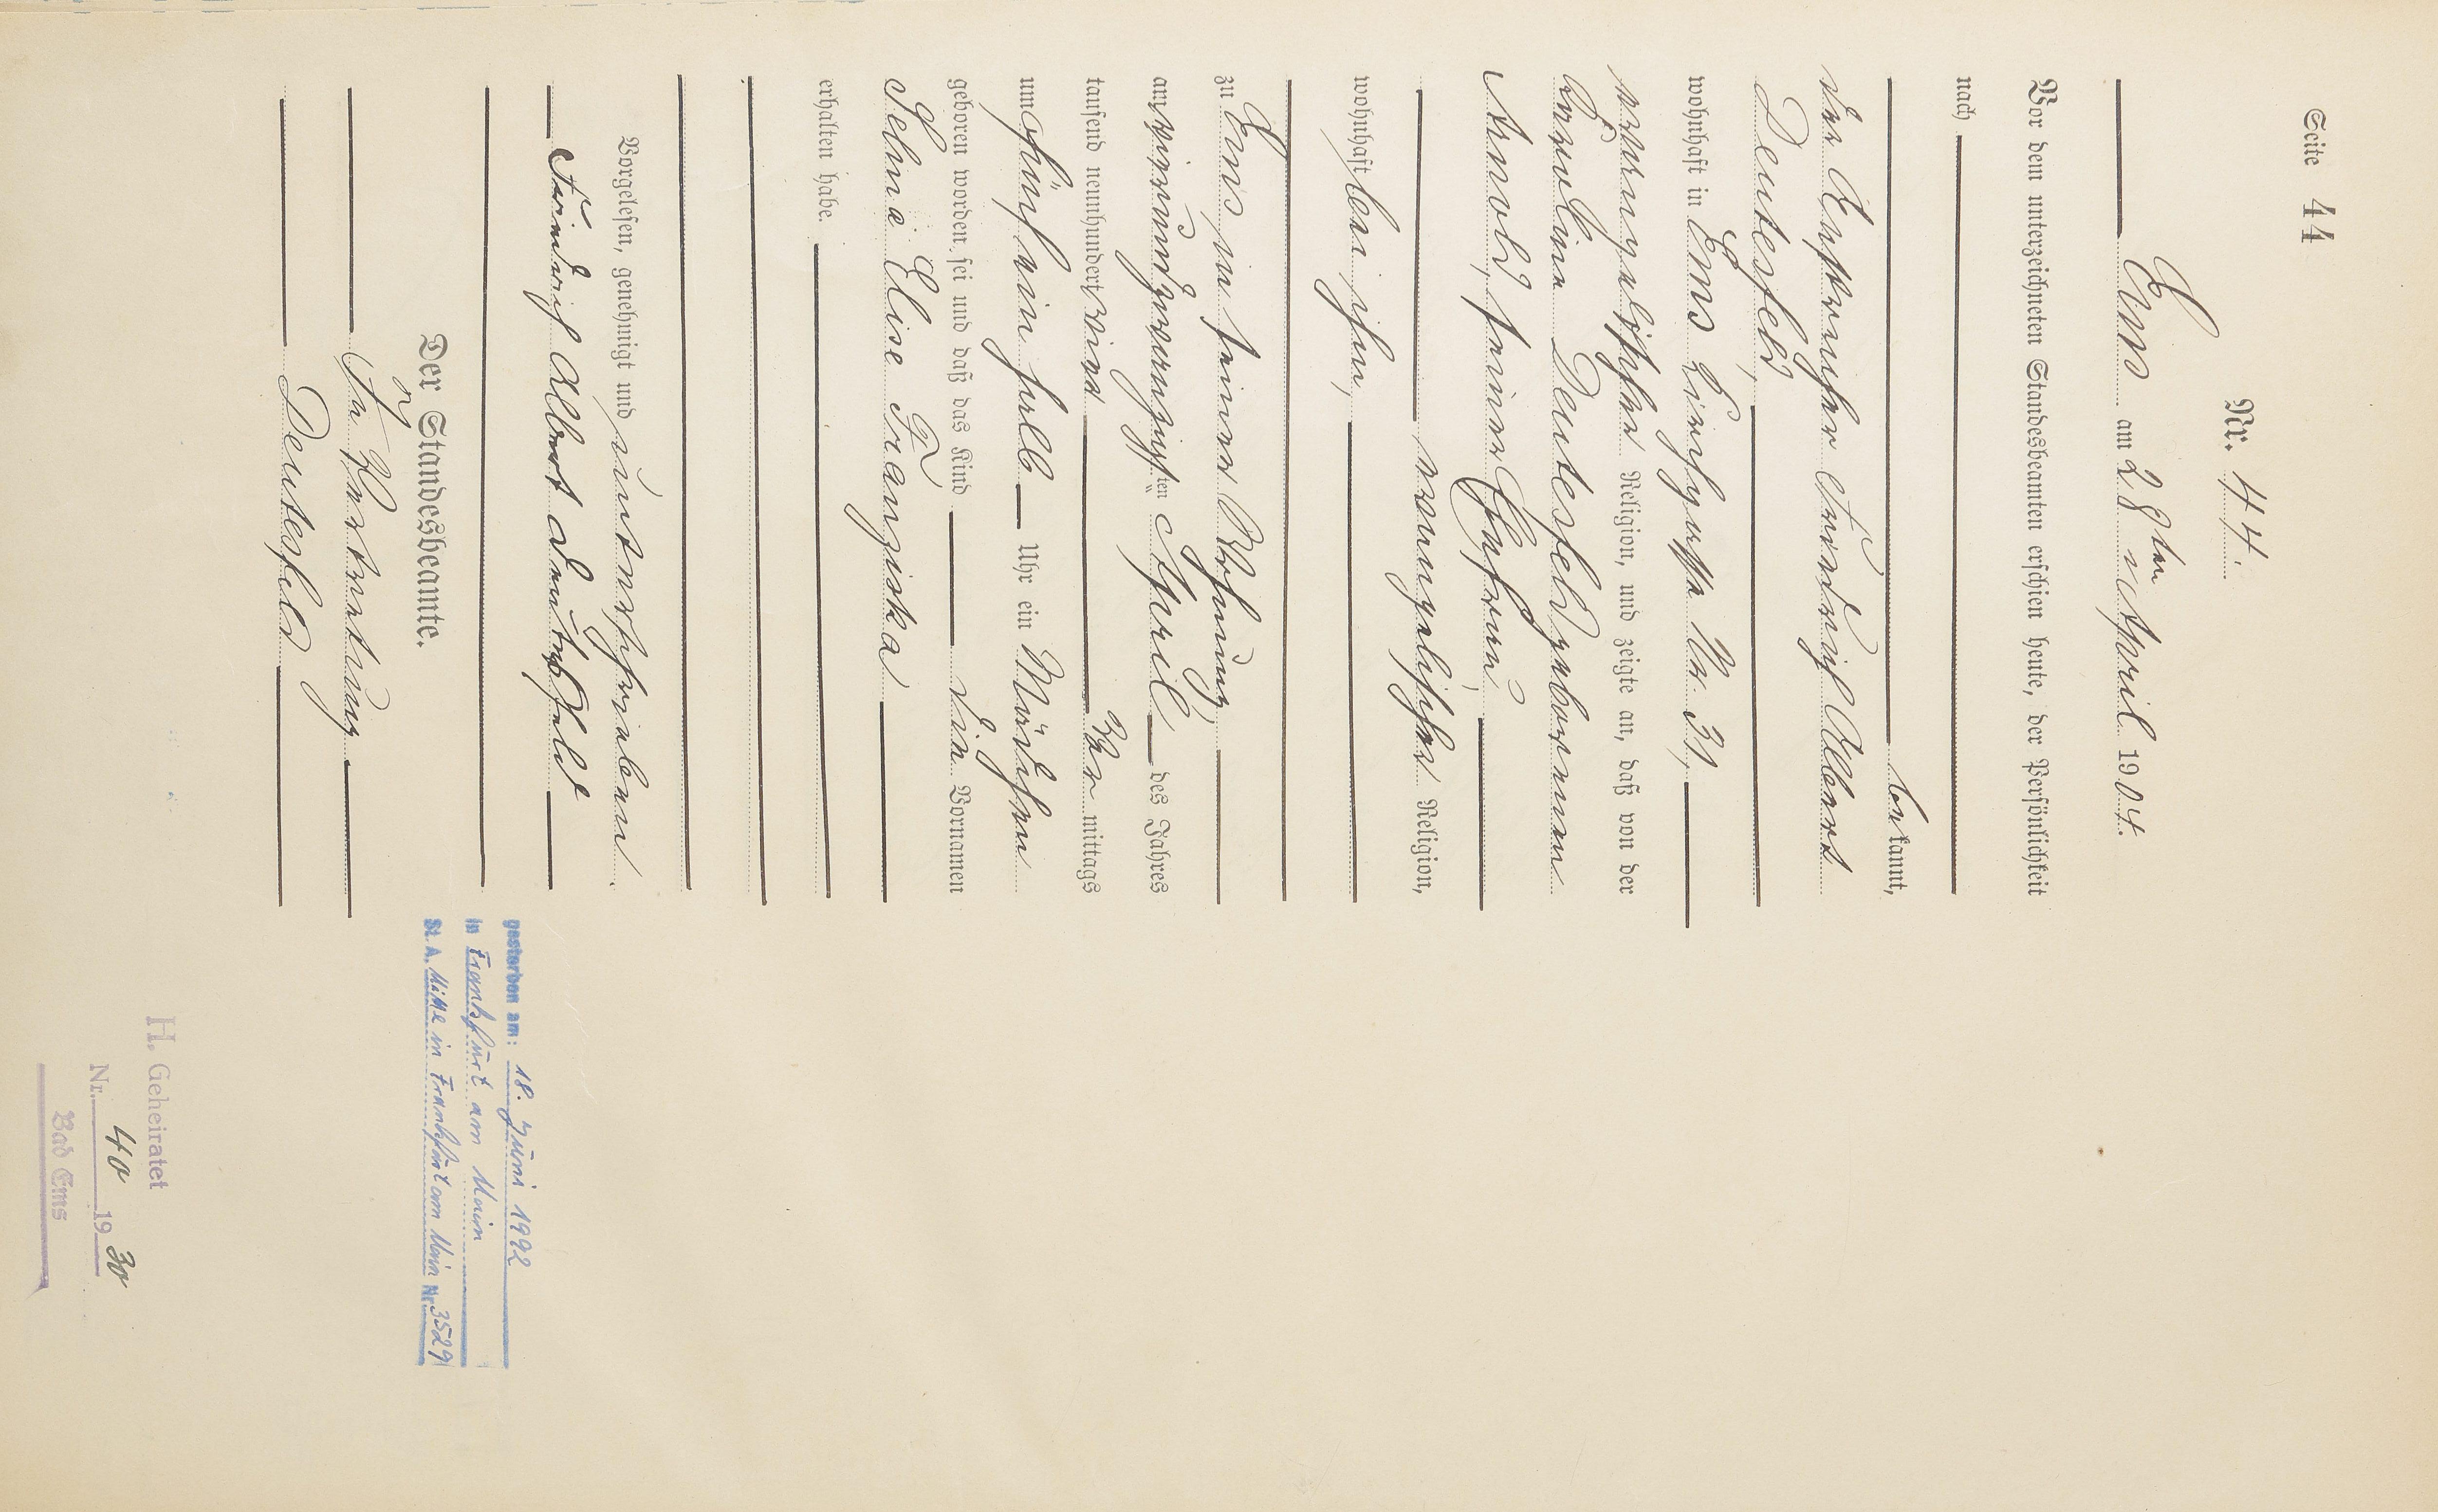 Seite 44
Nr. 44.
Ems am 28ten April 1904.
Vor dem unterzeichneten Standesbeamten erschien heute, der Persönlichkeit
nach
bekannt,
der Friedrich Albert
Deutesfeld,
wohnhaft in Ems Nr. 31,
evangelischer Religion, und zeigte an, daß von der
Karoline Deutesfeld geborenen
Arnold, seiner Ehefrau,
evangelischer Religion,
wohnhaft bei ihm,
zu Ems in seiner Wohnung,
am vierundzwanzigsten April des Jahres
tausend neunhundert vier Vor mittags
um fünfeinhalb Uhr ein Mädchen
geboren worden sei und daß das Kind die Vornamen
Selma Elise Franziska
erhalten habe.
Vorgelesen, genehmigt und unterschrieben
Friedrich Albert Deutesfeld
Der Standesbeamte.
In Vertretung
Deutesfeld
gestorben am: 18. Juni 1992
in Frankfurt am Main
St. A. Mitte in Frankfurt am Main Nr. 3529
H. Geheiratet
Nr. 40 1930
Bad Ems